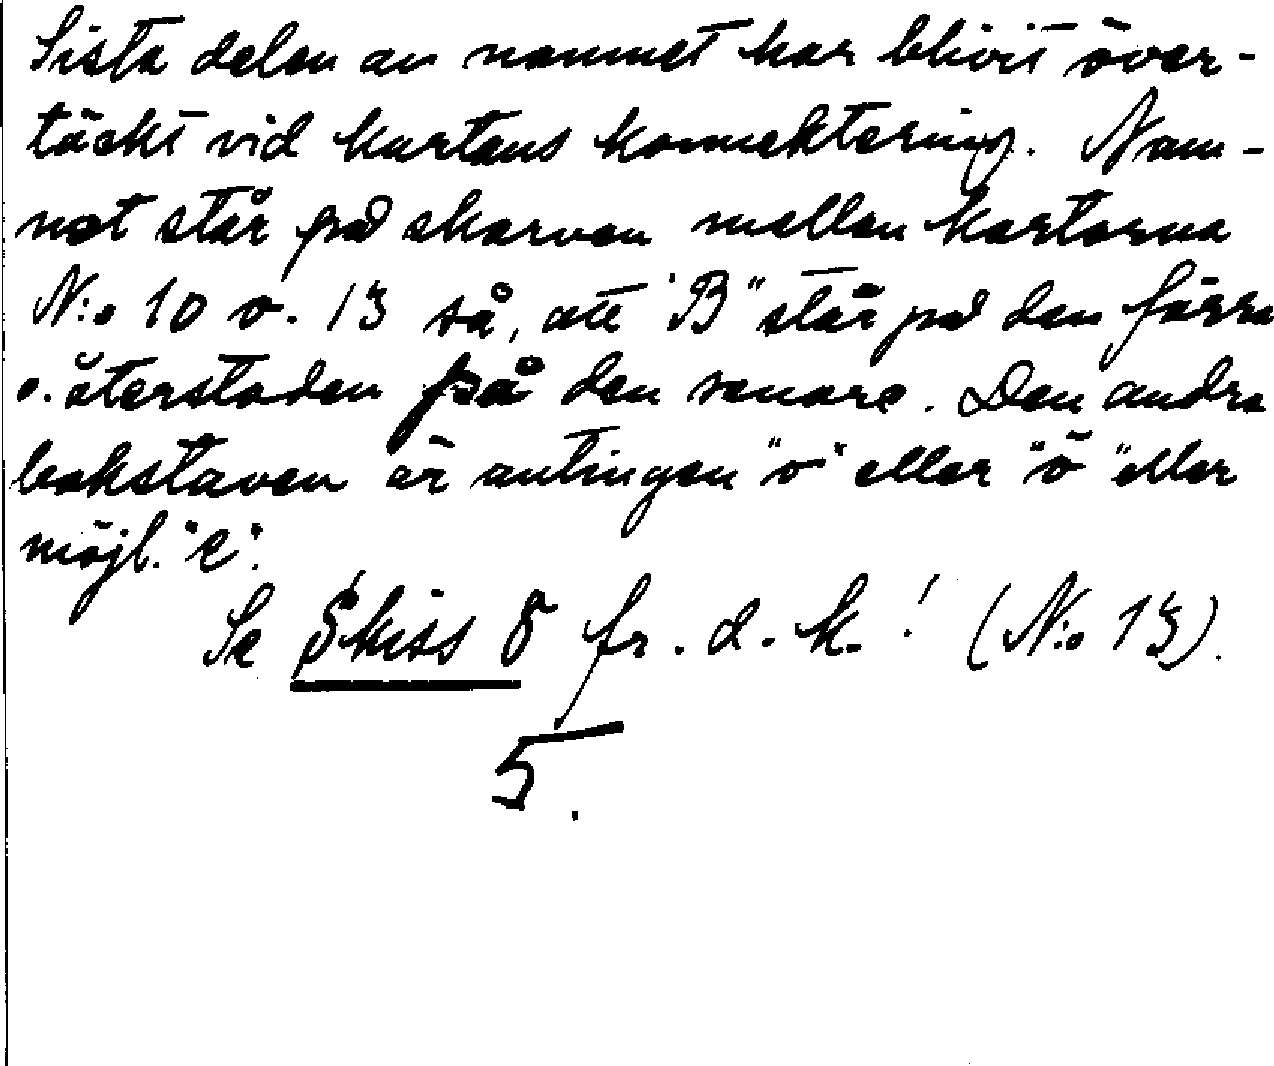 Sista delen av namnet har blivit över-
täckt vid kartans konnektering. Nam-
net står på skarven mellan kartorna
N:o 10 o. 13 så, att "B" står på den förra
o. återstoden på den senare. Den andra
bokstaven är antingen "o" eller "ö" eller
möjl. "e".
Se Skiss 8 fr. d. k.! (N:o 13).
5.